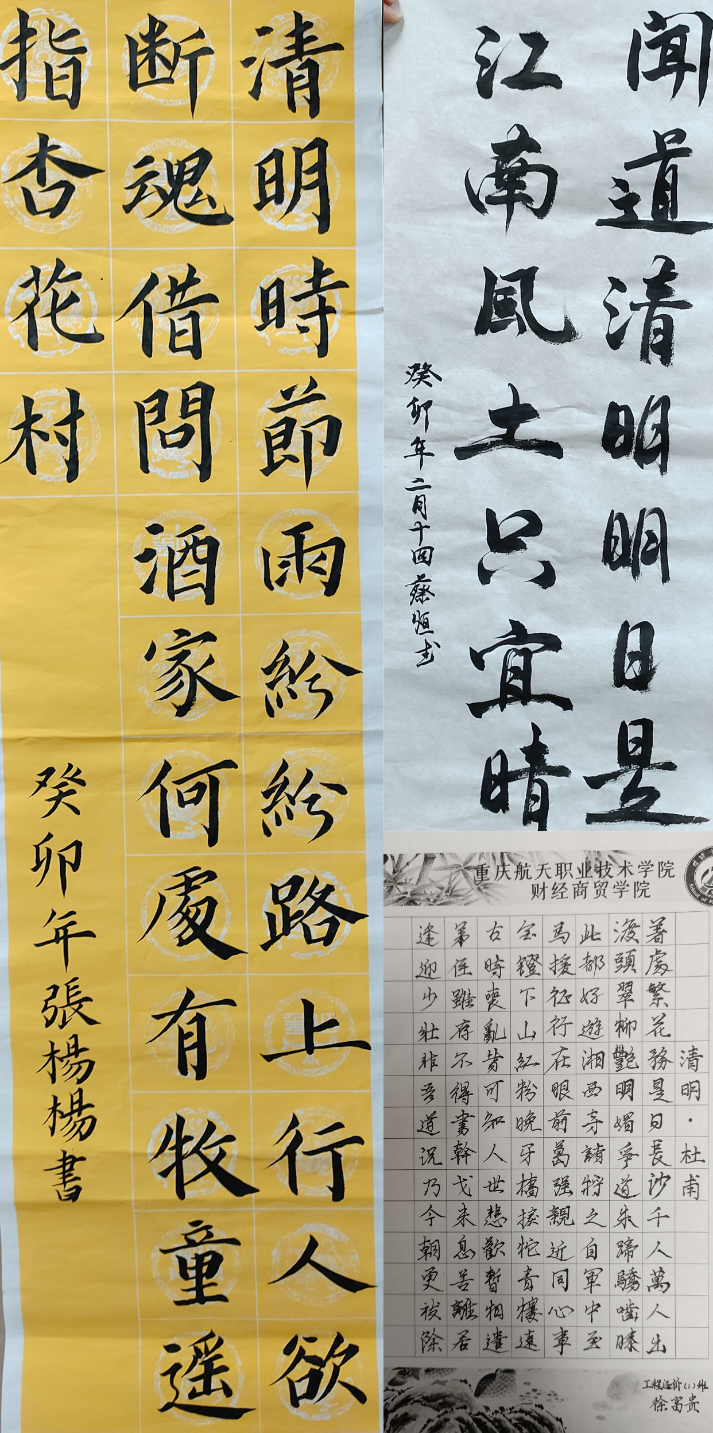 清明時節雨紛紛路上行人欲
断魂借問酒家何處有牧童遥
指杏花村
癸卯年張楊楊書
闻道清明明日是
江南風土只宜晴
癸卯年二月十四蔡恒书
重庆航天职业技术学院
财经商贸学院
清明·杜甫
著處繁花務是日長沙千人萬人出
渡頭翠柳艷明媚爭道朱蹄驕嚙膝
此都好遊湘西寺諸將之自軍中至
馬援征行在眼前葛强親近同心事
金鐙下山紅粉晚牙檣捩柁青樓遠
古時喪亂皆可知人世悲歡暫相遣
弟侄雖存不得書幹戈未息苦離居
逢迎少壯非吾道況乃今朝更祓除
工程造价(1)班
徐富贵